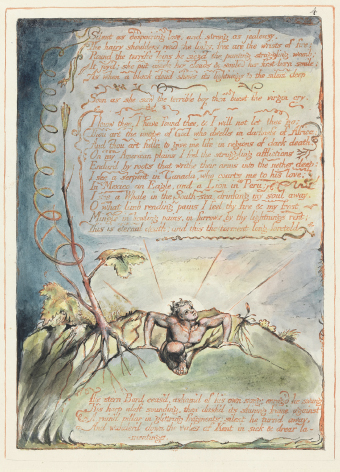 4
Silent as despairing love, and strong as jealousy,
The hairy shoulders rend the links, free are the wrists of fire;
Round the terrific loins he siez'd the panting struggling womb;
It joy'd: she put aside her clouds & smiled her first-born smile;
As when a black cloud shews its lightnings to the silent deep.
Soon as she saw the terrible boy then burst the virgin cry.
I know thee, I have found thee, & I will not let thee go;
Thou art the image of God who dwells in darkness of Africa;
And thou art fall'n to give me life in regions of dark death.
On my American plains I feel the struggling afflictions
Endur'd by roots that writhe their arms into the nether deep:
I see a serpent in Canada, who courts me to his love;
In Mexico an Eagle, and a Lion in Peru;
I see a Whale in the South-sea, drinking my soul away.
O what limb rending pains I feel. thy fire & my frost
Mingle in howling pains, in furrows by thy lightnings rent;
This is eternal death; and this the torment long foretold.
The stern Bard ceas'd, asham'd of his own song; enrag'd he swung
His harp aloft sounding, then dash'd its shining frame against
A ruin'd pillar in glittring fragments; silent he turn'd away,
And wander'd down the vales of Kent in sick & drear la-
mentings.